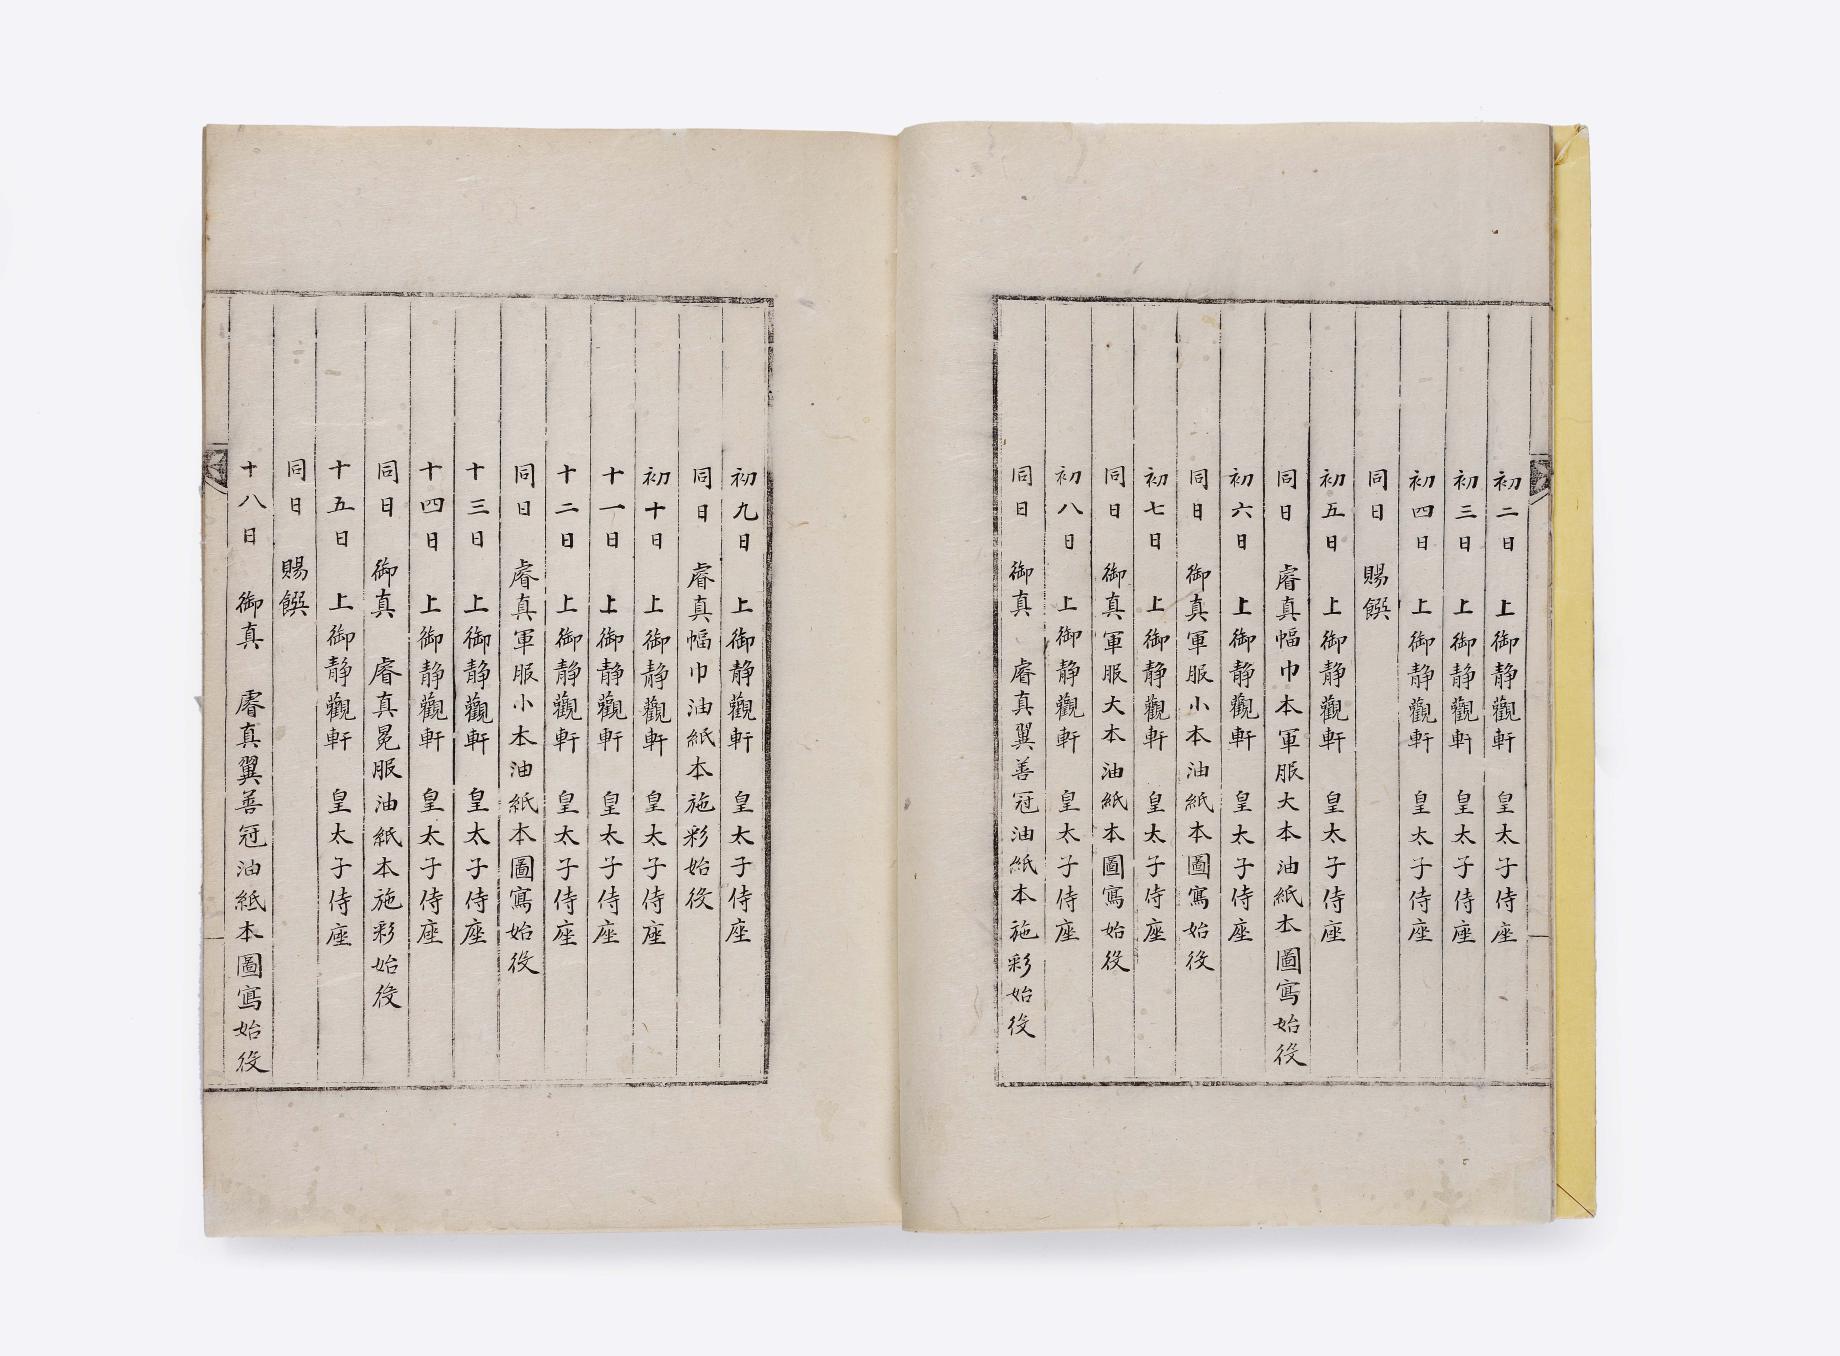 初二日 上御静觀軒 皇太子侍座
初三日 上御静觀軒 皇太子侍座
初四日 上御静觀軒 皇太子侍座
同日 賜饌
初五日 上御静觀軒 皇太子侍座
同日 睿真幅巾本軍服大本油紙本圖寫始役
初六日 上御静觀軒 皇太子侍座
同日 御真軍服小本油紙本圖寫始役
初七日 上御静觀軒 皇太子侍座
同日 御真軍服大本油紙本圖寫始役
初八日 上御静觀軒 皇太子侍座
同日 御真 睿真翼善冠油紙本施彩始役
初九日 上御静觀軒 皇太子侍座
同日 睿真幅巾油紙本施彩始役
初十日 上御静觀軒 皇太子侍座
十一日 上御静觀軒 皇太子侍座
十二日 上御静觀軒 皇太子侍座
同日 睿真軍服小本油紙本圖寫始役
十三日 上御静觀軒 皇太子侍座
十四日 上御静觀軒 皇太子侍座
同日 御真 睿真冕服油紙本施彩始役
十五日 上御静觀軒 皇太子侍座
同日 賜饌
十八日 御真 睿真翼善冠油紙本圖寫始役